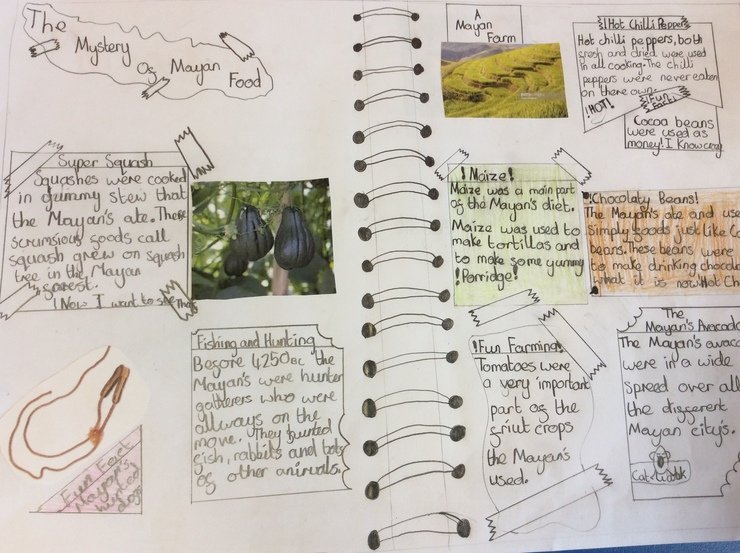 The
Mystery
Of Mayan
Food
Super Squash
Squashes were cooked
in yummy stew that
the Mayan's ate. These
scrumsious foods call
squash grew on squash
tree in the Mayan
forest.
! Now I want to see that
Fishing and Hunting
Before 4250BC the
Mayan's were hunter
gatherers who were
allways on the
move. They hunted
fish, rabbits and lots
of other animals.
Fun Fact
Mayan's
hunted
dogs
A
Mayan
Farm
!Hot Chilli Peppers
Hot chilli peppers, both
fresh and dried were used
in all cooking. The chilli
peppers were never eaten
on there own.
!HOT!
!Fun
Fact!
Cocoa beans
were used as
money! I Know crazy
!Maize!
Maize was a main part
of the Mayan's diet.
Maize was used to
make tortillas and
to make some yummy
!Porridge!
!Chocolaty Beans!
The Mayan's ate and use
simply foods just like Co
beans. these beans were
to make drinking chocola
what it is now Hot Ch
!Fun Farming!
Tomatoes were
a very important
part of the
friut crops
the Mayan's
used.
The
Mayan's Avocado
The Mayan's avoc
were in a wide
spread over all
the different
Mayan city's.